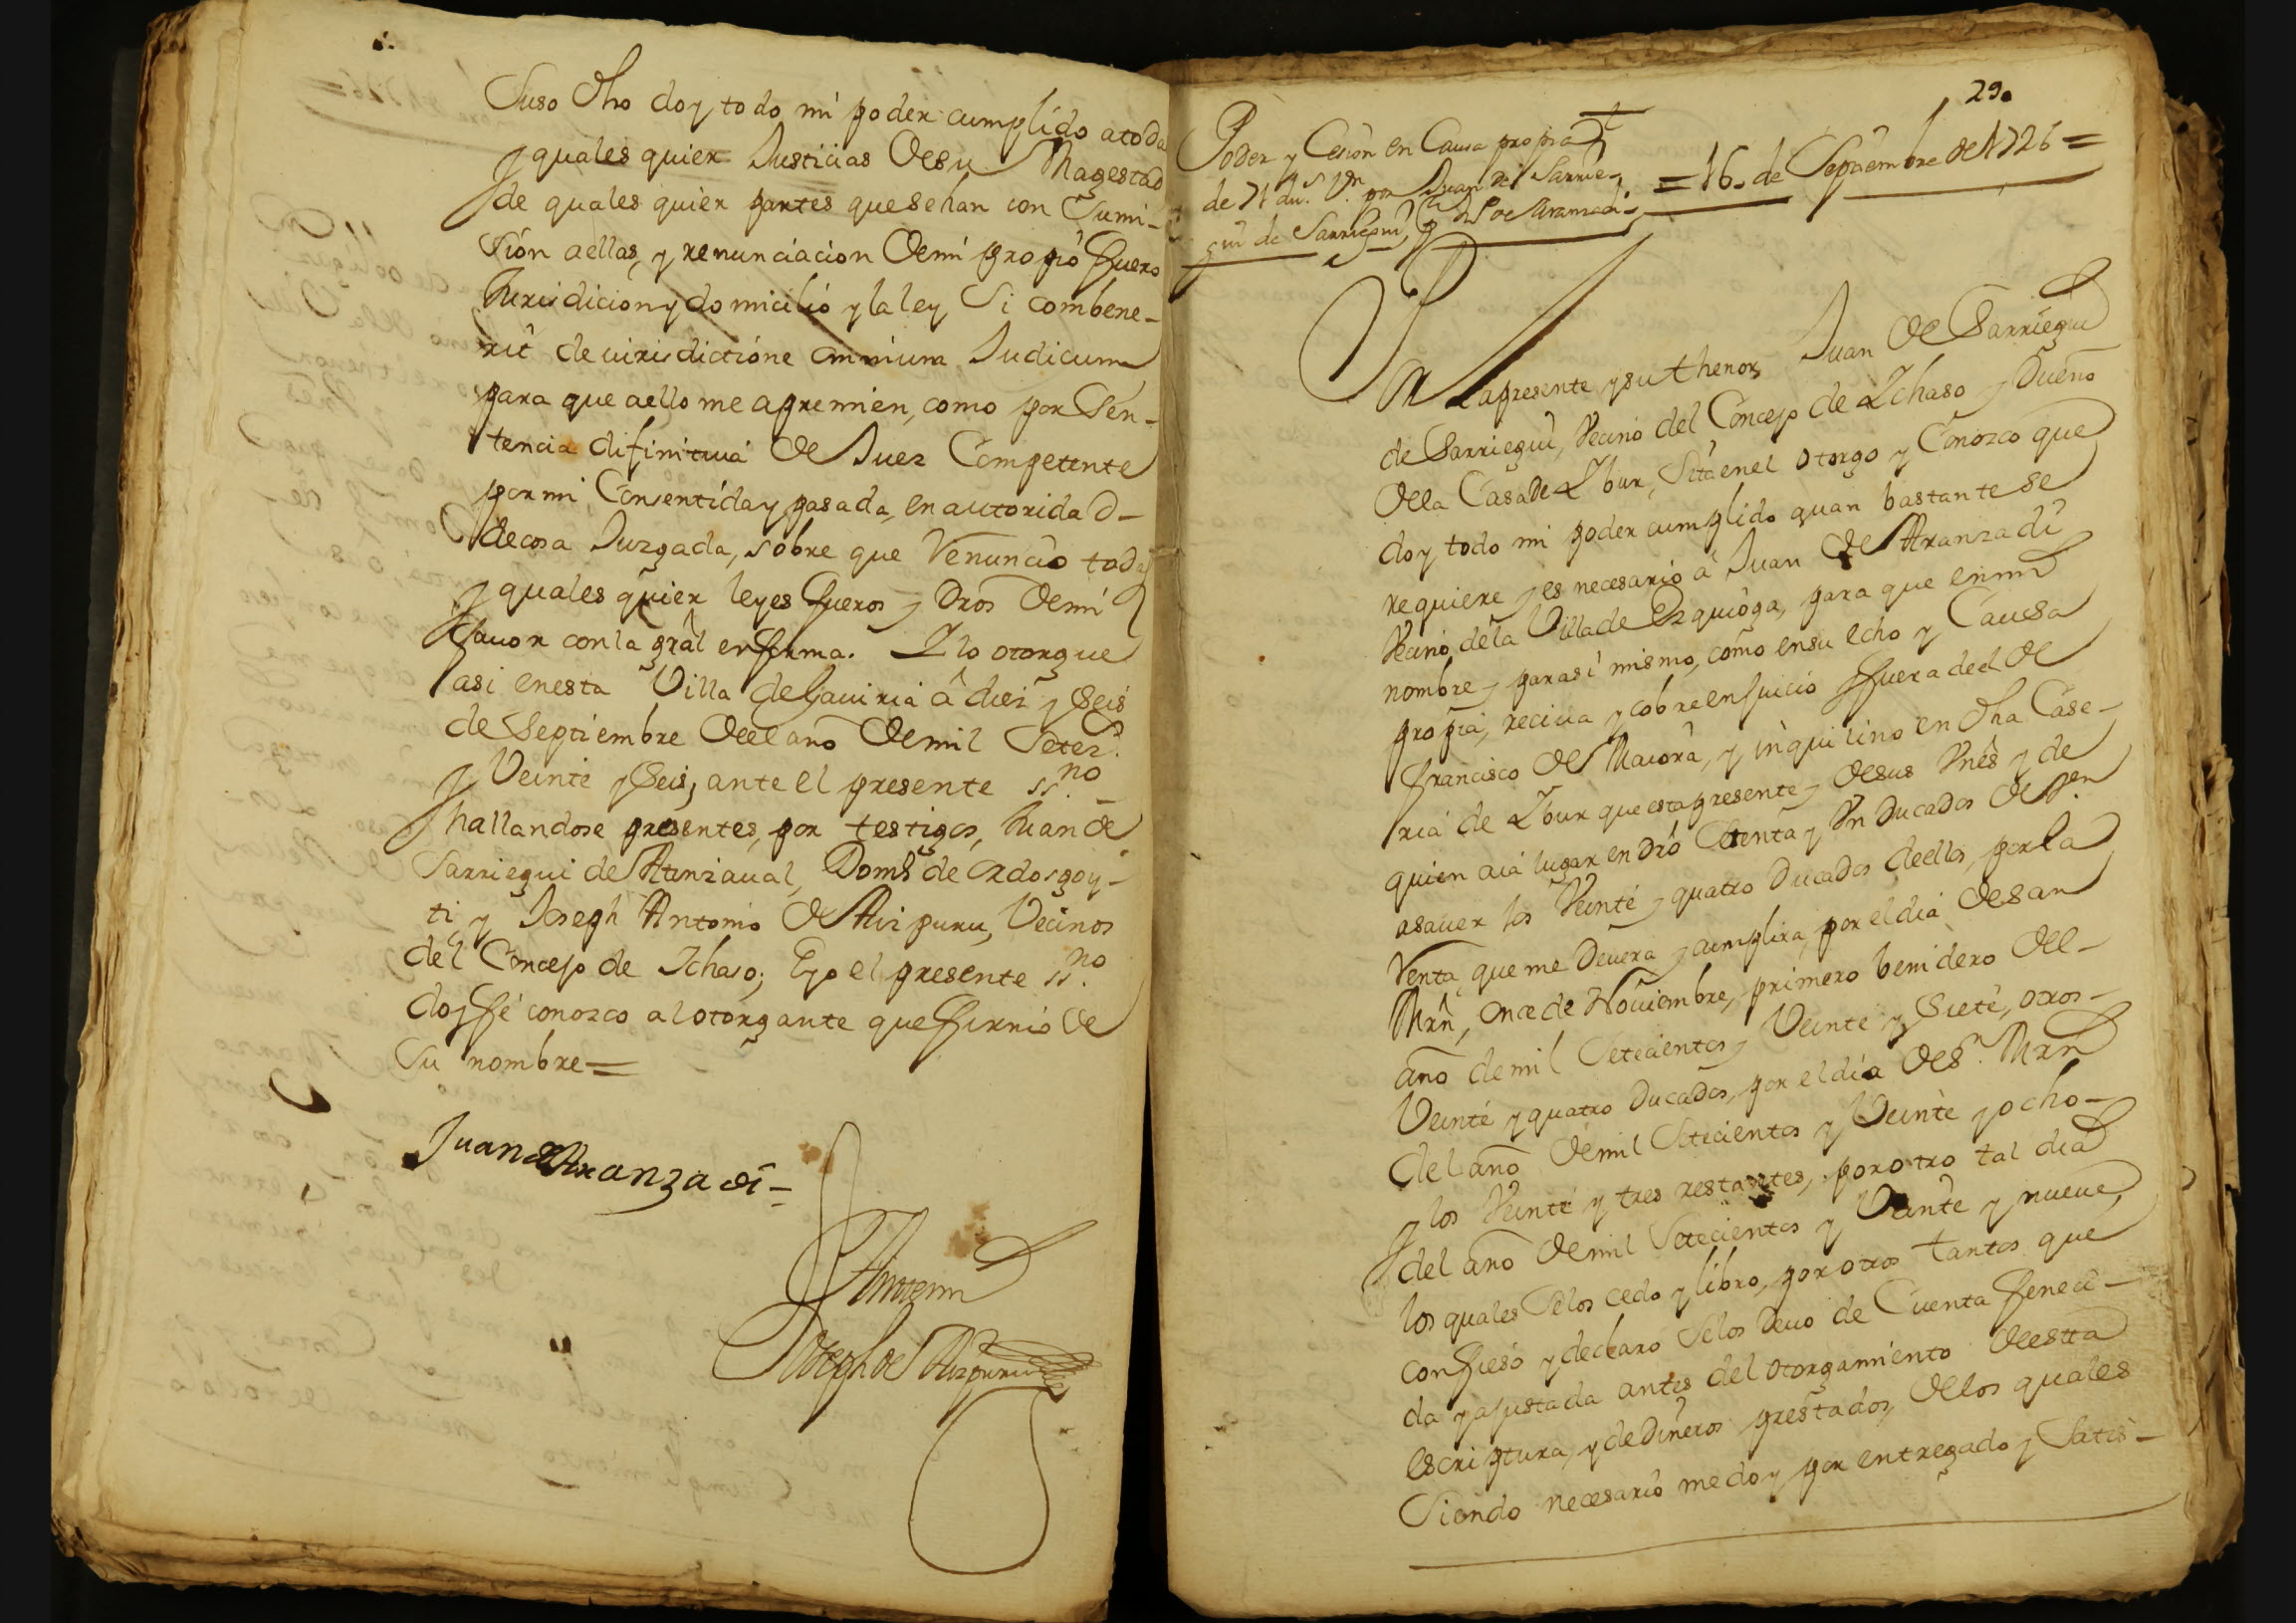 Suso dho doy todo mi poder cumplido a toda
y quales quier Justicias de su Magestad
de quales quier partes que sehan con sumi-
sión a ellas, y renunciacion de mi propio fuero
Jurisdicion y domicilio y la ley Si combene-
rit de iurisdictione omnium Judicum
para que a ello me apremien, como por sen-
tencia difinitiua de Juez Competente
por mi Consentida y pasada, en autoridad-
de cosa Juzgada, sobre que Renuncio todas
y quales quier leyes fueros y dros de mi
fauor con la gràl en forma. Y lo otorgue
asi en esta Villa de Gauiria â diez y seis
de Septiembre del año de mil setez.s
y Veinte y Seis, ante el presente ss.no
hallandose presentes, por testigos, Juan de
Sarriegui de Atunzaual, Dom.o de Ordosgoy-
ti, y Joseph Antonio de Aizpuru, Vecinos
del Concejo de Ichaso; E yo el presente ss.no
doy fé conozco al otorgante que firmó de
Su nombre=
Juan de Aranzadi-
Antemi
Joseph de Aizpuru
29.
Poder y Cesion en Causa propria
de 71 du.s V.n por Juan de Sarrie-
gui de Sarriegui, a Jn de Aranzadi.
=16. de Septiembre de 1726=
Por la presente y su thenor, Juan de Sarriegui
de Sarriegui, Vecino del Concejo de Ychaso y Dueño
de la Casa de Ybur, Sita en el otorgo y Conozco que
doy todo mi poder cumplido quan bastante se
requiere y es necesario â Juan de Aranzadi
Vecino de la Villa de Ezquioga, para que en mi
nombre y para sí mismo, como en su echo y Causa
propria, reciua y cobre en Juicio y fuera de el de
francisco de Maiora, y inquilino en dha Case-
ria de Ybur que esta presente y de sus Vnes y de
quien aia lugar en dro Setenta y Vn Ducados de V.on
asauer los Veinte y quatro Ducados de ellos, por la
Renta, que me deuera y cumplira, por el dia de san
Mrñ, once de Nouiembre, primero benidero del-
año de mil Setecientos y Veinte y Siete, otros-
Veinte y quatro Ducados, por el día de S.n Mrñ
del año de mil Setecientos y Veinte y ocho-
y los Veinte y tres restantes, por otro tal dia
del año de mil Setecientos y Veinte y nueue,
los quales Se los cedo y libro, por otros tantos que
confieso y declaro Se los deuo de Cuenta feneci-
da y ajustada antes del otorgamiento de esta
escriptura, y de Dineros prestados, de los quales
Siendo necesario me doy por entregado y Satis-